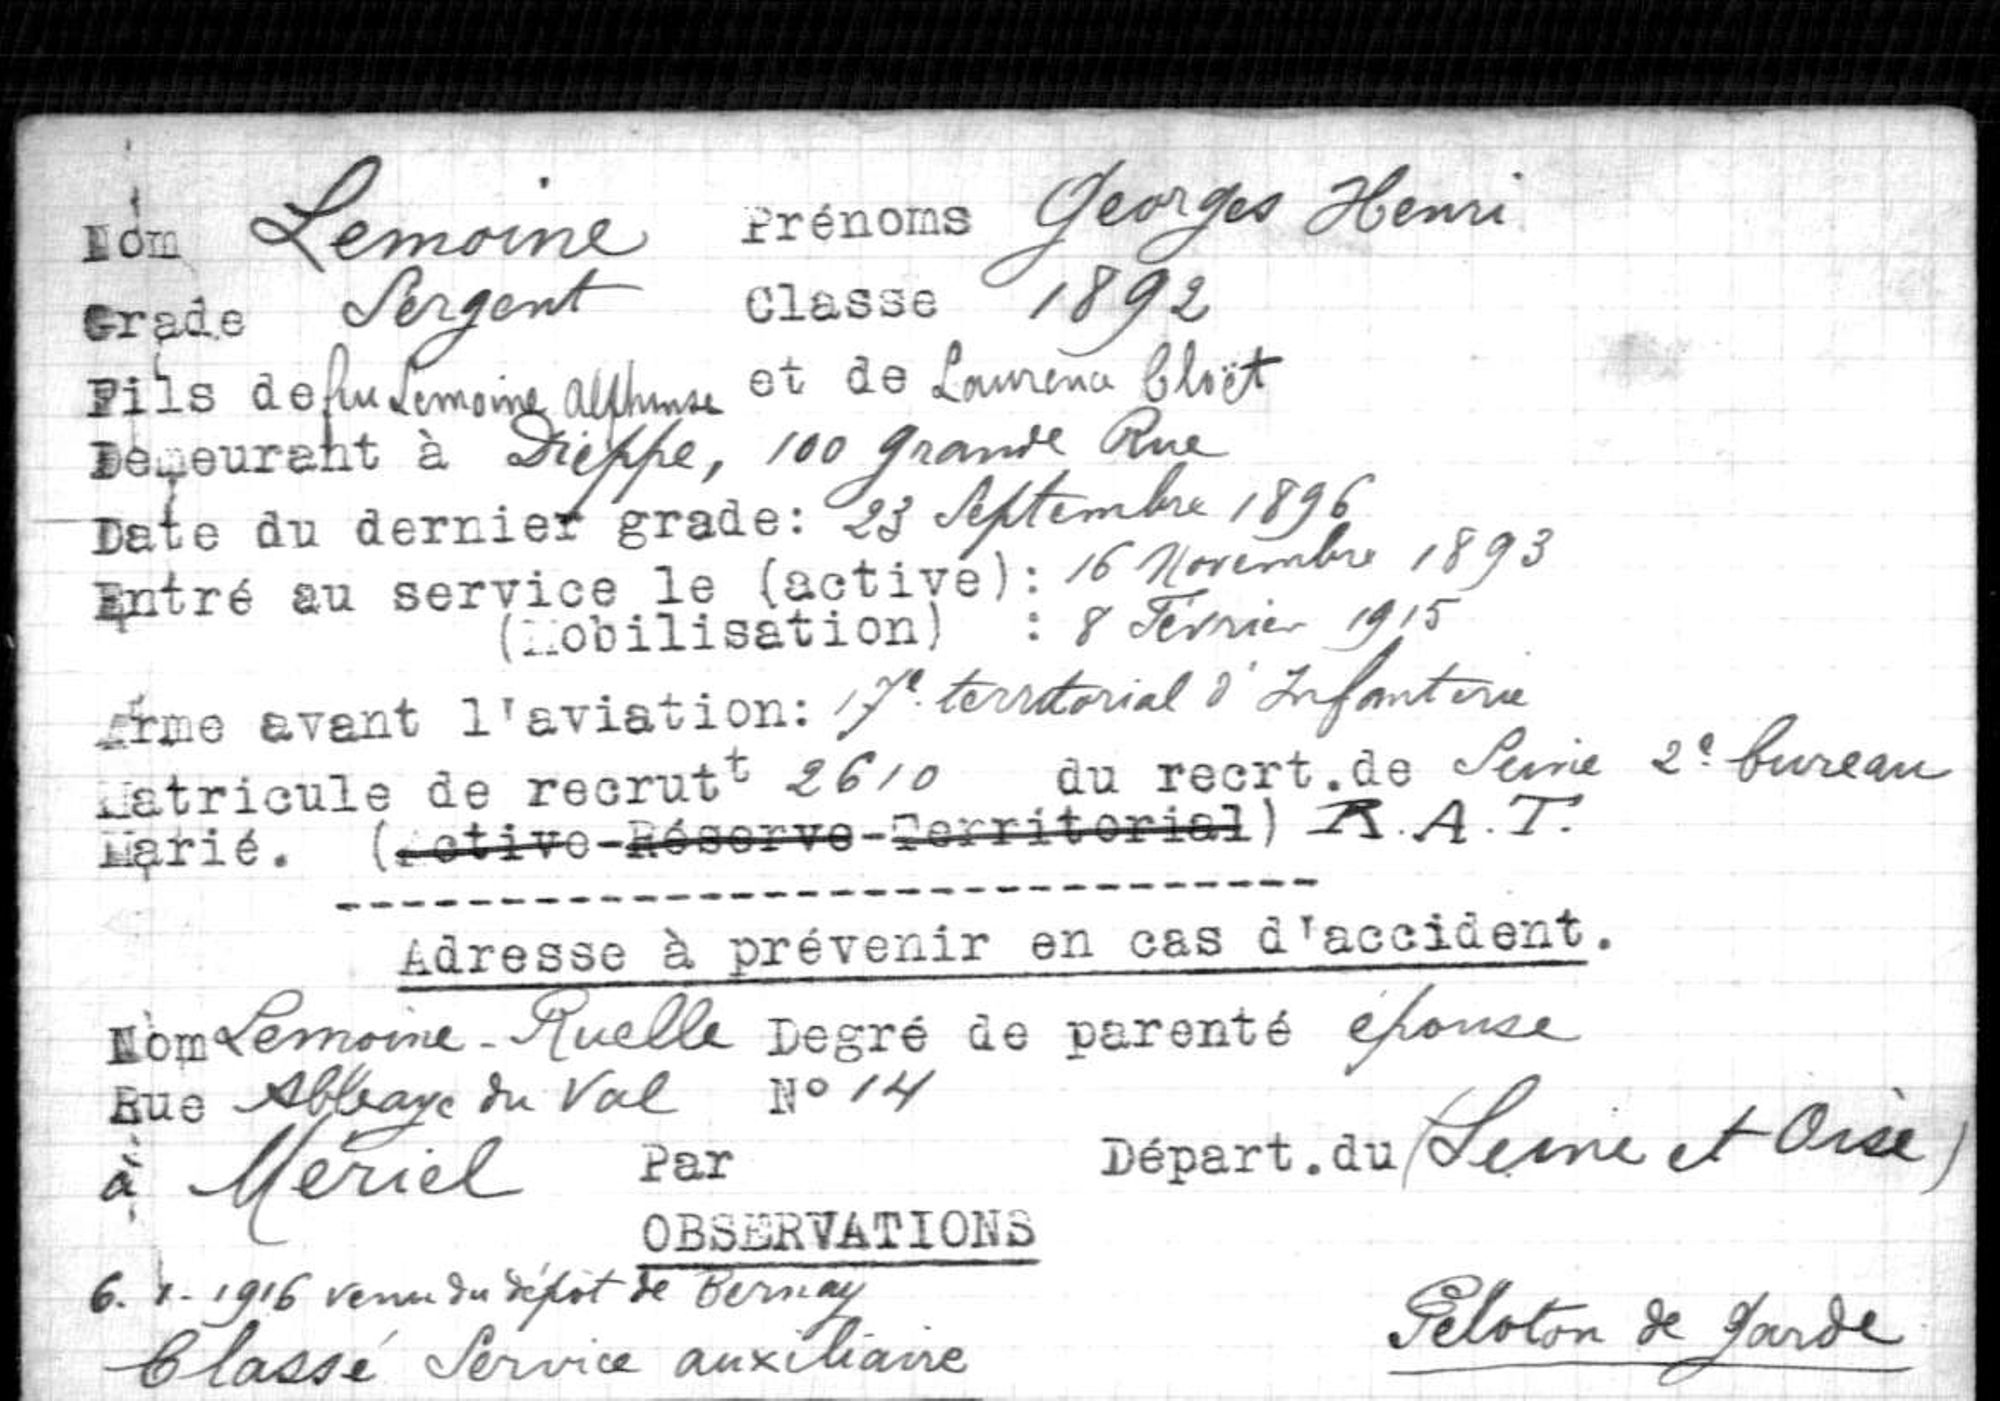 Nom Lemoine Prénoms Georges Henri
Grade Sergent Classe 1892
Fils de feu Lemoine Alphonse et de Laurena Cloët
Demeurant à Dieppe, 100 Grande Rue
Date du dernier grade: 23 Septembre 1896
Entré au service le (active): 16 Novembre 1893
(Mobilisation) : 8 Février 1915
Arme avant l'aviation: 17e territorial d'Infanterie
Matricule de recrutt 2610 du recrt.de Seine 2e bureau
Marié. (Active-Réserve-Territorial) R.A.T.
Adresse à prévenir en cas d'accident.
Nom Lemoine-Ruelle Degré de parenté épouse
Rue Abbaye du Val No 14
à Mériel Par Départ.du (Seine et Oise)
OBSERVATIONS
6. 1. 1916 venu du dépôt de Bernay
Classé Service auxiliaire
Peloton de Garde